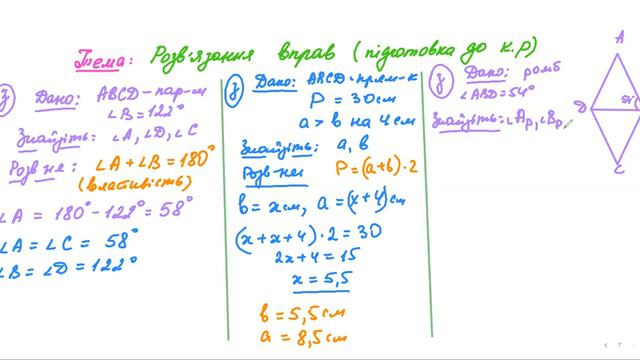 Тема: Розв'язання вправ (підготовка до к.р)
З Дано: ABCD-пар-м
∠B=122°
Знайдіть: ∠A, ∠D, ∠C
Розв-ня: ∠A + ∠B = 180°
(властивість)
∠A = 180°-122° = 58°
∠A = ∠C = 58°
∠B = ∠D = 122°
З Дано: ABCD-прям-к
P = 30см
a > b на 4см
Знайдіть: a, b
Розв-ня P=(a+b)·2
b = x см, a = (x+4)см
(x+x+4)·2=30
2x+4=15
x = 5,5
b = 5,5см
a = 8,5см
З Дано: ромб
∠ABD=54°
Знайдіть: ∠Aр, ∠Bр
A
D
54°
C
< 7